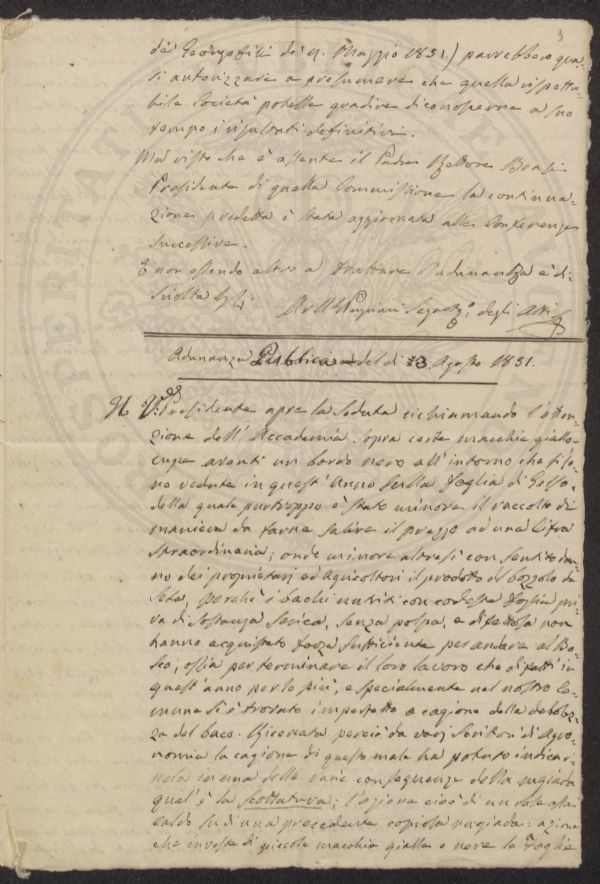 3
dei Georgofili dei 4. Maggio 1851.) parrebbero qua-
si autorizzare a presumere che quella rispetta-
bile Società potesse gradire di conoscerne a suo
tempo i risultati definitivi.
Ma visto che è assente il Padre Rettore
Presidente di quella Commissione la continua-
zione predetta è stata aggiornata alle Conferenze
successive.
E non essendo altro a trattare l'adunanza è di-
sciolta
degli Atti
Adunanza Pubblica del dì 13. Agosto 1851.
Il V. Presidente apre la Seduta richiamando l'atten-
zione dell'Accademia sopra certe macchie giallo-
cupe aventi un bordo nero all'intorno che si so-
no vedute in quest'Anno sulla foglia di Gelso,
della quale purtroppo è stato minore il raccolto di
maniera da farne salire il prezzo ad una Cifra
straordinaria; onde minore altresì con sentito dan-
no dei proprietarj ed Agricoltori il prodotto del bozzolo da
seta, perchè i bachi nutriti con codesta foglia pri-
va di sostanza serica, senza polpa, e difettosa non
hanno acquistato forza sufficiente per andare al Bo-
sco, ossia per terminare il loro lavoro che difatti in
quest'anno per lo più, e specialmente nel nostro Co-
mune si è trovato imperfetto a cagione della debolez-
za del baco. Ricercata perciò da varj Scrittori di Agro-
nomia la cagione di questo male ha potuto indicar-
sela in una delle varie conseguenze della rugiada
qual'è la scottatura; l'azione cioè di un sole assai
caldo su di una precedente copiosa rugiada: azione
che investe di piccole macchie gialle o nere le foglie